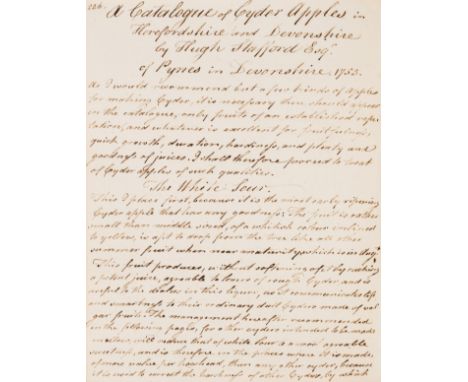 226.
A Catalogue of Cyder Apples in
Herefordshire and Devonshire
by Hugh Stafford Esqr.
of Pynes in Devonshire. 1753.
As I would recommend but a few kinds of apples
for making Cyder, it is necessary there should appear
in the catalogue, only fruits of an established repu-
tation, and whatever is excellent for fruitfulness,
quick growth, duration, hardiness, and plenty and
goodness of juices. I shall therefore proceed to treat
of Cyder apples of such qualities.
The White Sour.
This I place first, because it is the most early ripening
Cyder apple that has any goodness. The fruit is rather
small than middle sized, of a whitish colour inclined
to yellow, is apt to drop from the tree like all other
summer fruit when near maturity which is in Augt.
This fruit produces, without softening after by making
a potent juice, agreable to lovers of rough Cyder and is
useful to the dealer in this liquor, as it communicates life
and smartness to their ordinary dull Cyders made of vul-
gar fruits. The management hereafter recommended
in the following pages, for other cyders intended to be made
mellow, will reduce that of white sour to a more agreable
smartness, and is therefore in the places where it is made,
of more value per hogshead, than any other cyder, because
it is used to correct the harshness of other Cyders, by which